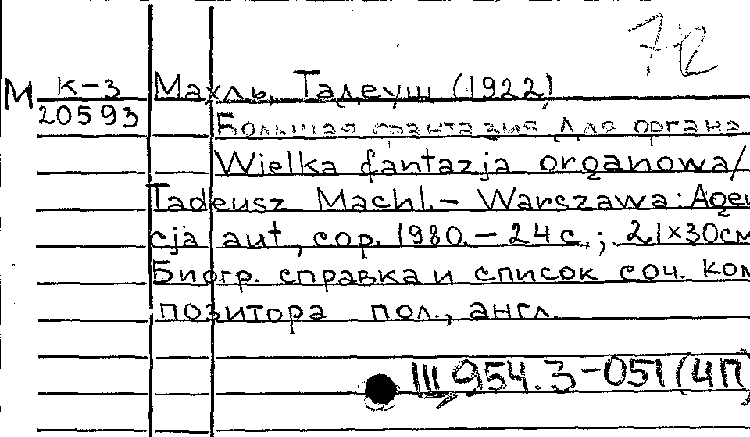 72
М К-3 Махль, Тадеуш (1922)
20593 Большая фантазия для органа
Wielka fantazja organowa/
Tadeusz Machl.– Warszawa: Agen
cja aut, cop. 1980.– 24 с.; 21×30см
Биогр. справка и список соч. ком
позитора пол., англ.
III 954.3-051(4П)